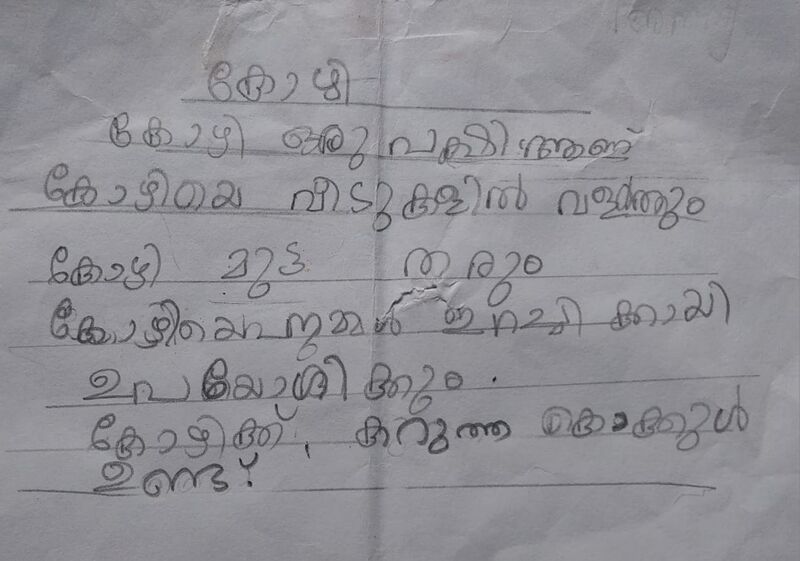 കോഴി
കോഴി ഒരു പക്ഷിആണ്
കോഴിയെ വീടുകളിൽ വളർത്തും
കോഴി മുട്ട തരും
കോഴിയെ ഇറച്ചിക്കായി
ഉപയോഗിക്കും.
കോഴിക്ക്, കറുത്ത കൊക്കുൾ
ഉണ്ട്.